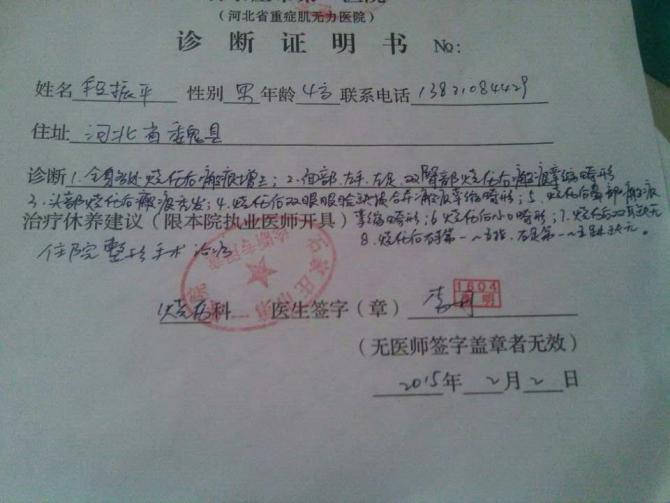 (河北省重症肌无力医院)
诊断证明书 No:
姓名 程振平 性别 男 年龄 48 联系电话 13821084429
住址 河北省魏县
诊断 1.全身多处烧伤后瘢痕增生;2.面部.左手.左足.双臀部烧伤后瘢痕挛缩畸形
3.头部烧伤后瘢痕秃发;4.烧伤后双眼眼睑缺损合并瘢痕挛缩畸形;5.烧伤后鼻部瘢痕
治疗休养建议(限本院执业医师开具) 挛缩畸形;6.烧伤后小口畸形;7.烧伤后双耳缺无
8.烧伤后右手第一~五指.右足第一~五趾缺无。
住院整形手术治疗
烧伤科 医生签字(章)
1604
(无医师签字盖章者无效)
2015年 2月2日